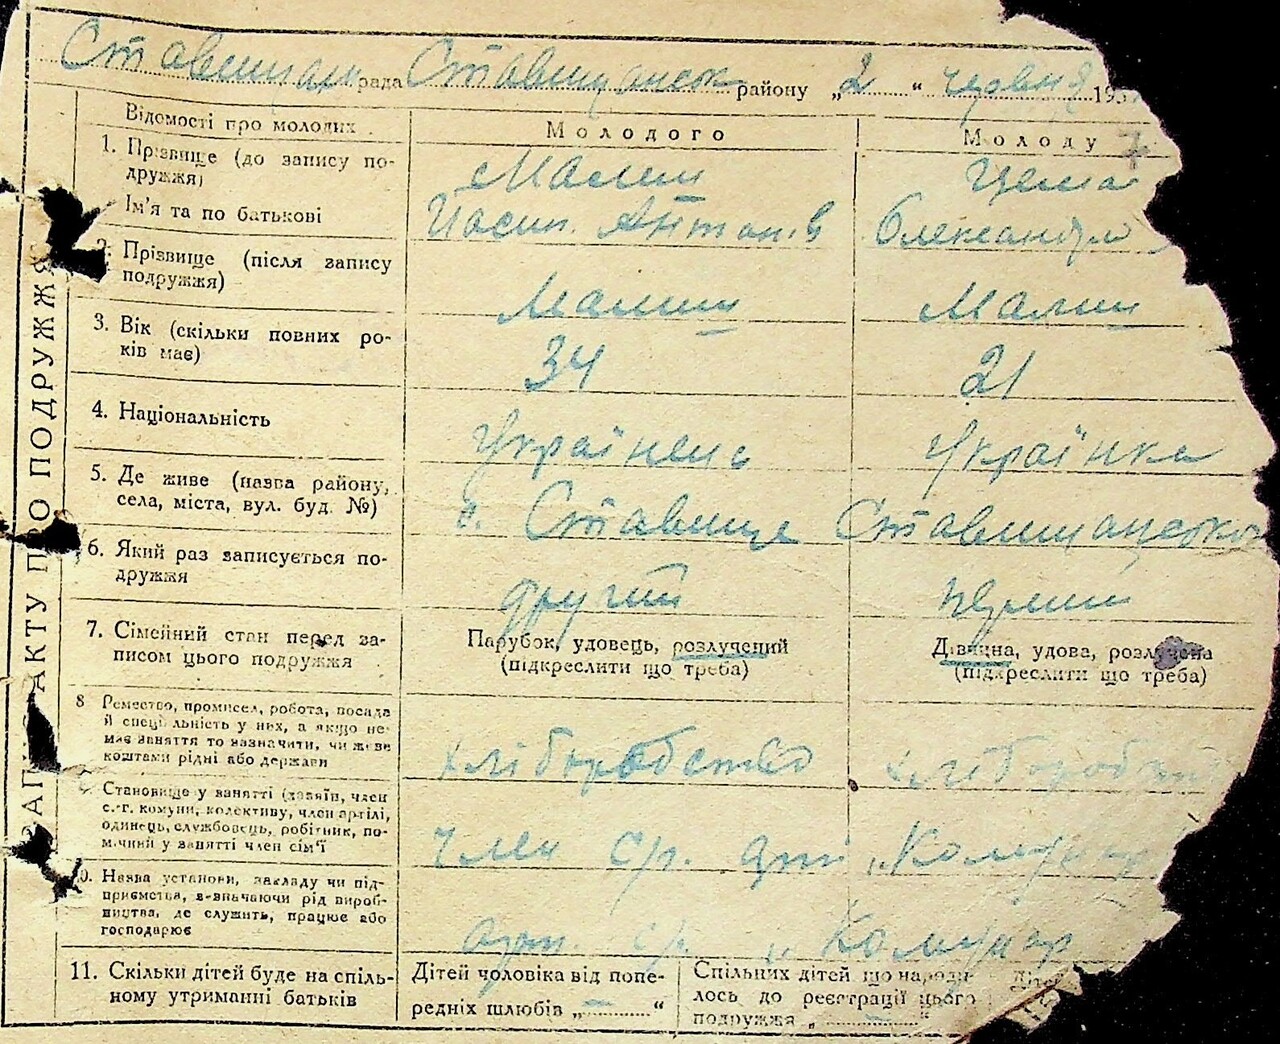 Ставищан рада Ставищанськ району „2“ червня 193
Відомості про молодих
Молодого
Молоду
1. Прізвище (до запису по-
дружжя)
Малиш
Цема
Ім'я та по батькові
Йосип. Антонів
Олександра
2. Прізвище (після запису
подружжя)
Малиш
Малиш
3. Вік (скільки повних ро-
ків має)
34
21
4. Національність
Українець
Українка
5. Де живе (назва району,
села, міста, вул. буд. №)
с. Ставище Ставищансько
6. Який раз записується по-
дружжя
другий
перший
7. Сімейний стан перед за-
писом цього подружжя
Парубок, удовець, розлучений
(підкреслити що треба)
Дівчина, удова, розлучена
(підкреслити що треба)
8 Ремество, промисел, робота, посада
й спеціальність у них, а якщо не
має заняття то зазначити, чи живе
коштами рідні або держави
хліборобство
хлібороб
Становище у занятті (хазяїн, член
с.-г. комуни, колективу, член артілі,
одинець, службовець, робітник, по-
мічний у занятті член сім'ї
член с/г. арт „Комунар
10. Назва установи, закладу чи під-
приємства, зазначаючи рід вироб-
ництва, де служить, працює або
господарює
арт. с/г. „Комунар
11. Скільки дітей буде на спіль-
ному утриманні батьків
Дітей чоловіка від попе-
редніх шлюбів „ — “
Спільних дітей що народи-
лось до реєстрації цього
подружжя „ — “
Діте
ЗАПИС АКТУ ПРО ПОДРУЖЖЯ